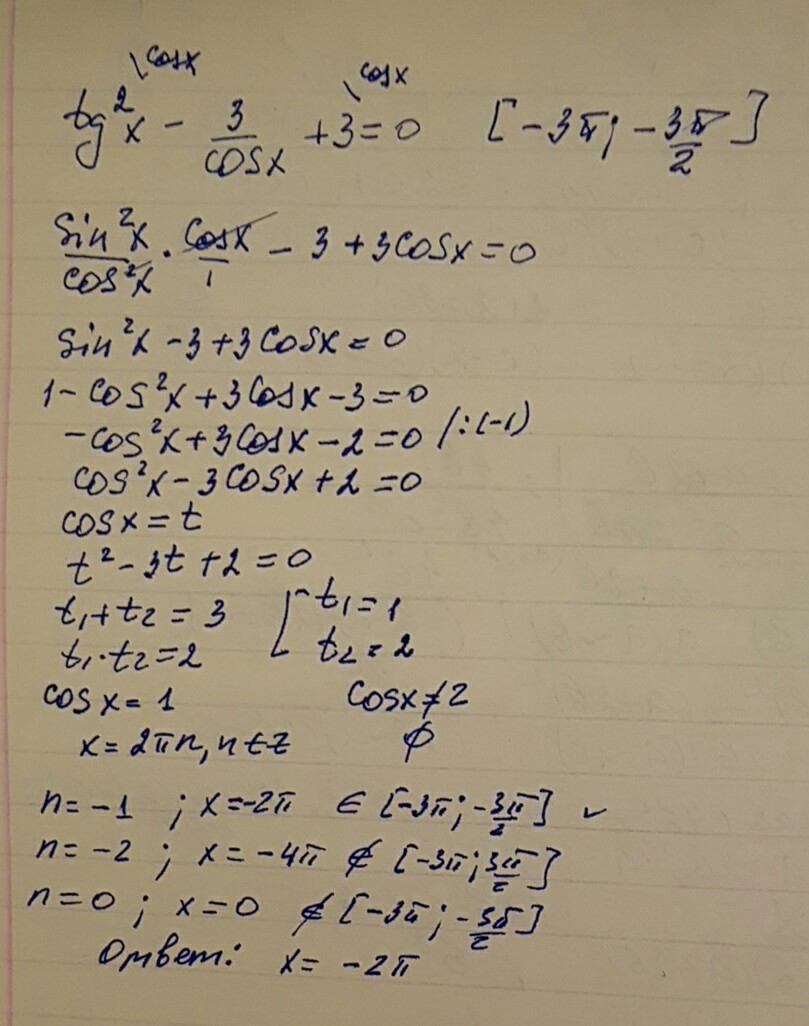 \cosx \cosx
tg²x - 3/cosx + 3 = 0 [-3π; -3π/2]
sin²x/cos²x · cosx/1 - 3 + 3cosx = 0
sin²x - 3 + 3cosx = 0
1 - cos²x + 3cosx - 3 = 0
-cos²x + 3cosx - 2 = 0 /:(-1)
cos²x - 3cosx + 2 = 0
cosx = t
t² - 3t + 2 = 0
t₁ + t₂ = 3 [ t₁ = 1
t₁ · t₂ = 2 t₂ = 2
cosx = 1 cosx ≠ 2
x = 2πn, n∈z ∅
n = -1 ; x = -2π ∈ [-3π; -3π/2] ✓
n = -2 ; x = -4π ∉ [-3π; 3π/2]
n = 0 ; x = 0 ∉ [-3π; -3π/2]
Ответ: x = -2π